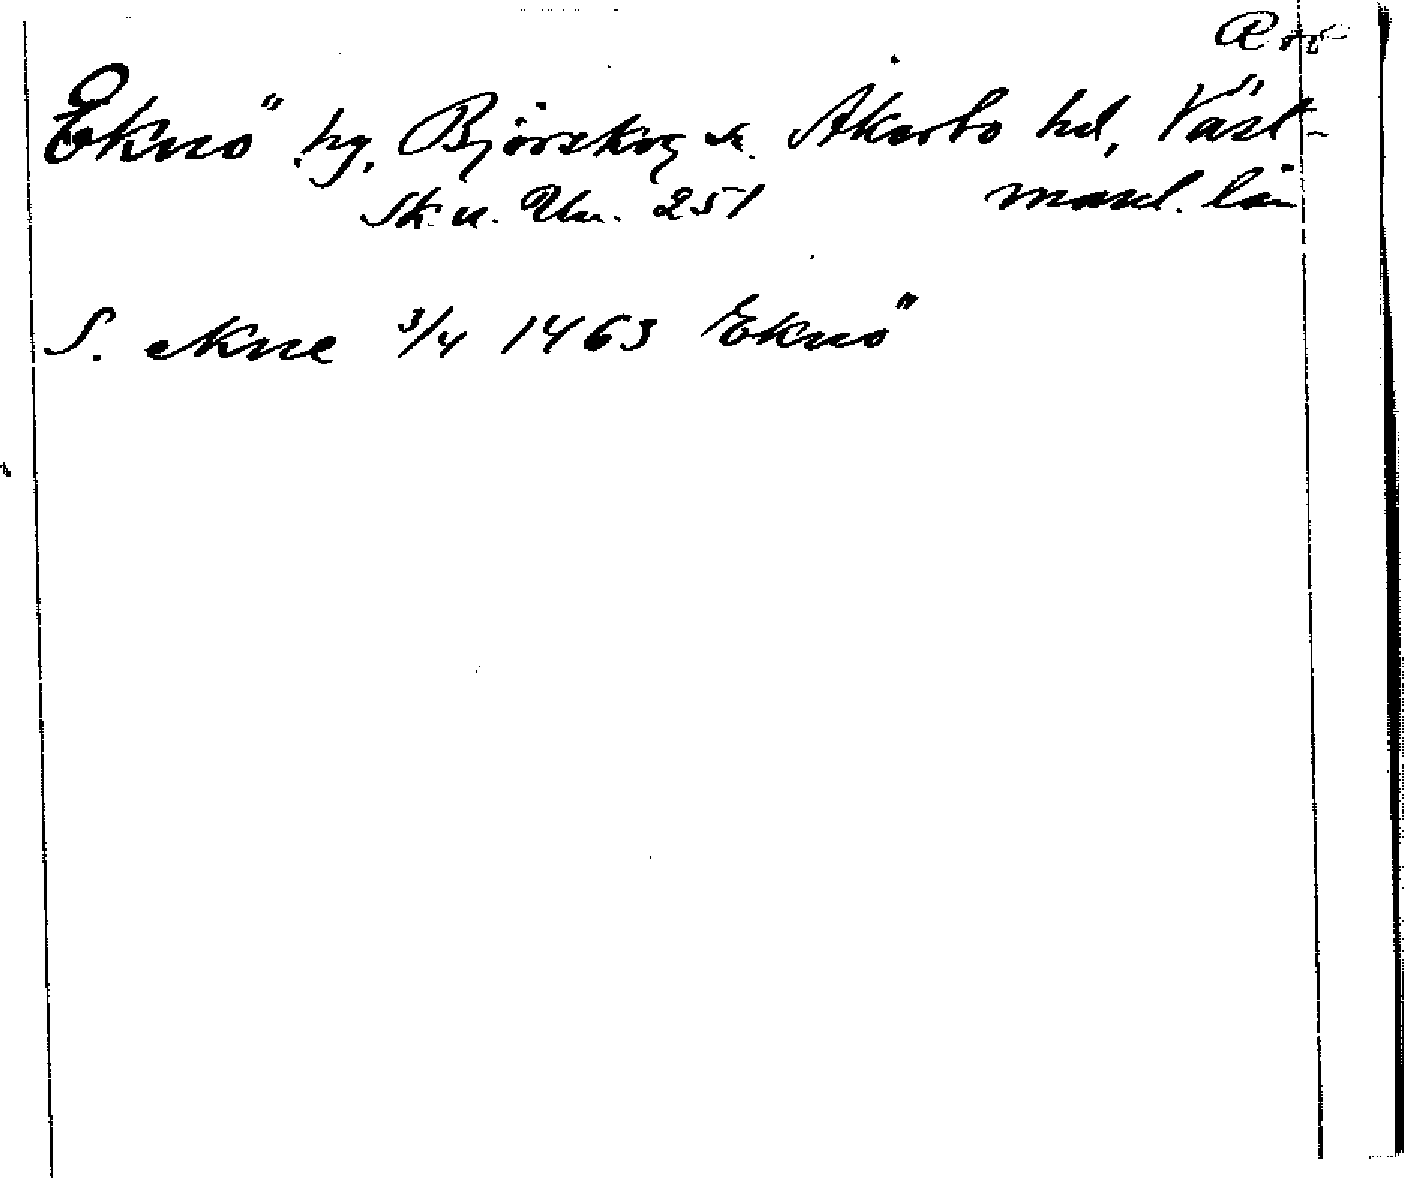 Eknö by, Björskog sn. Åkerbo hd, Väst-
manl. län
Sk. u. Un. 251
S. ekne 3/4 1463 Eknö